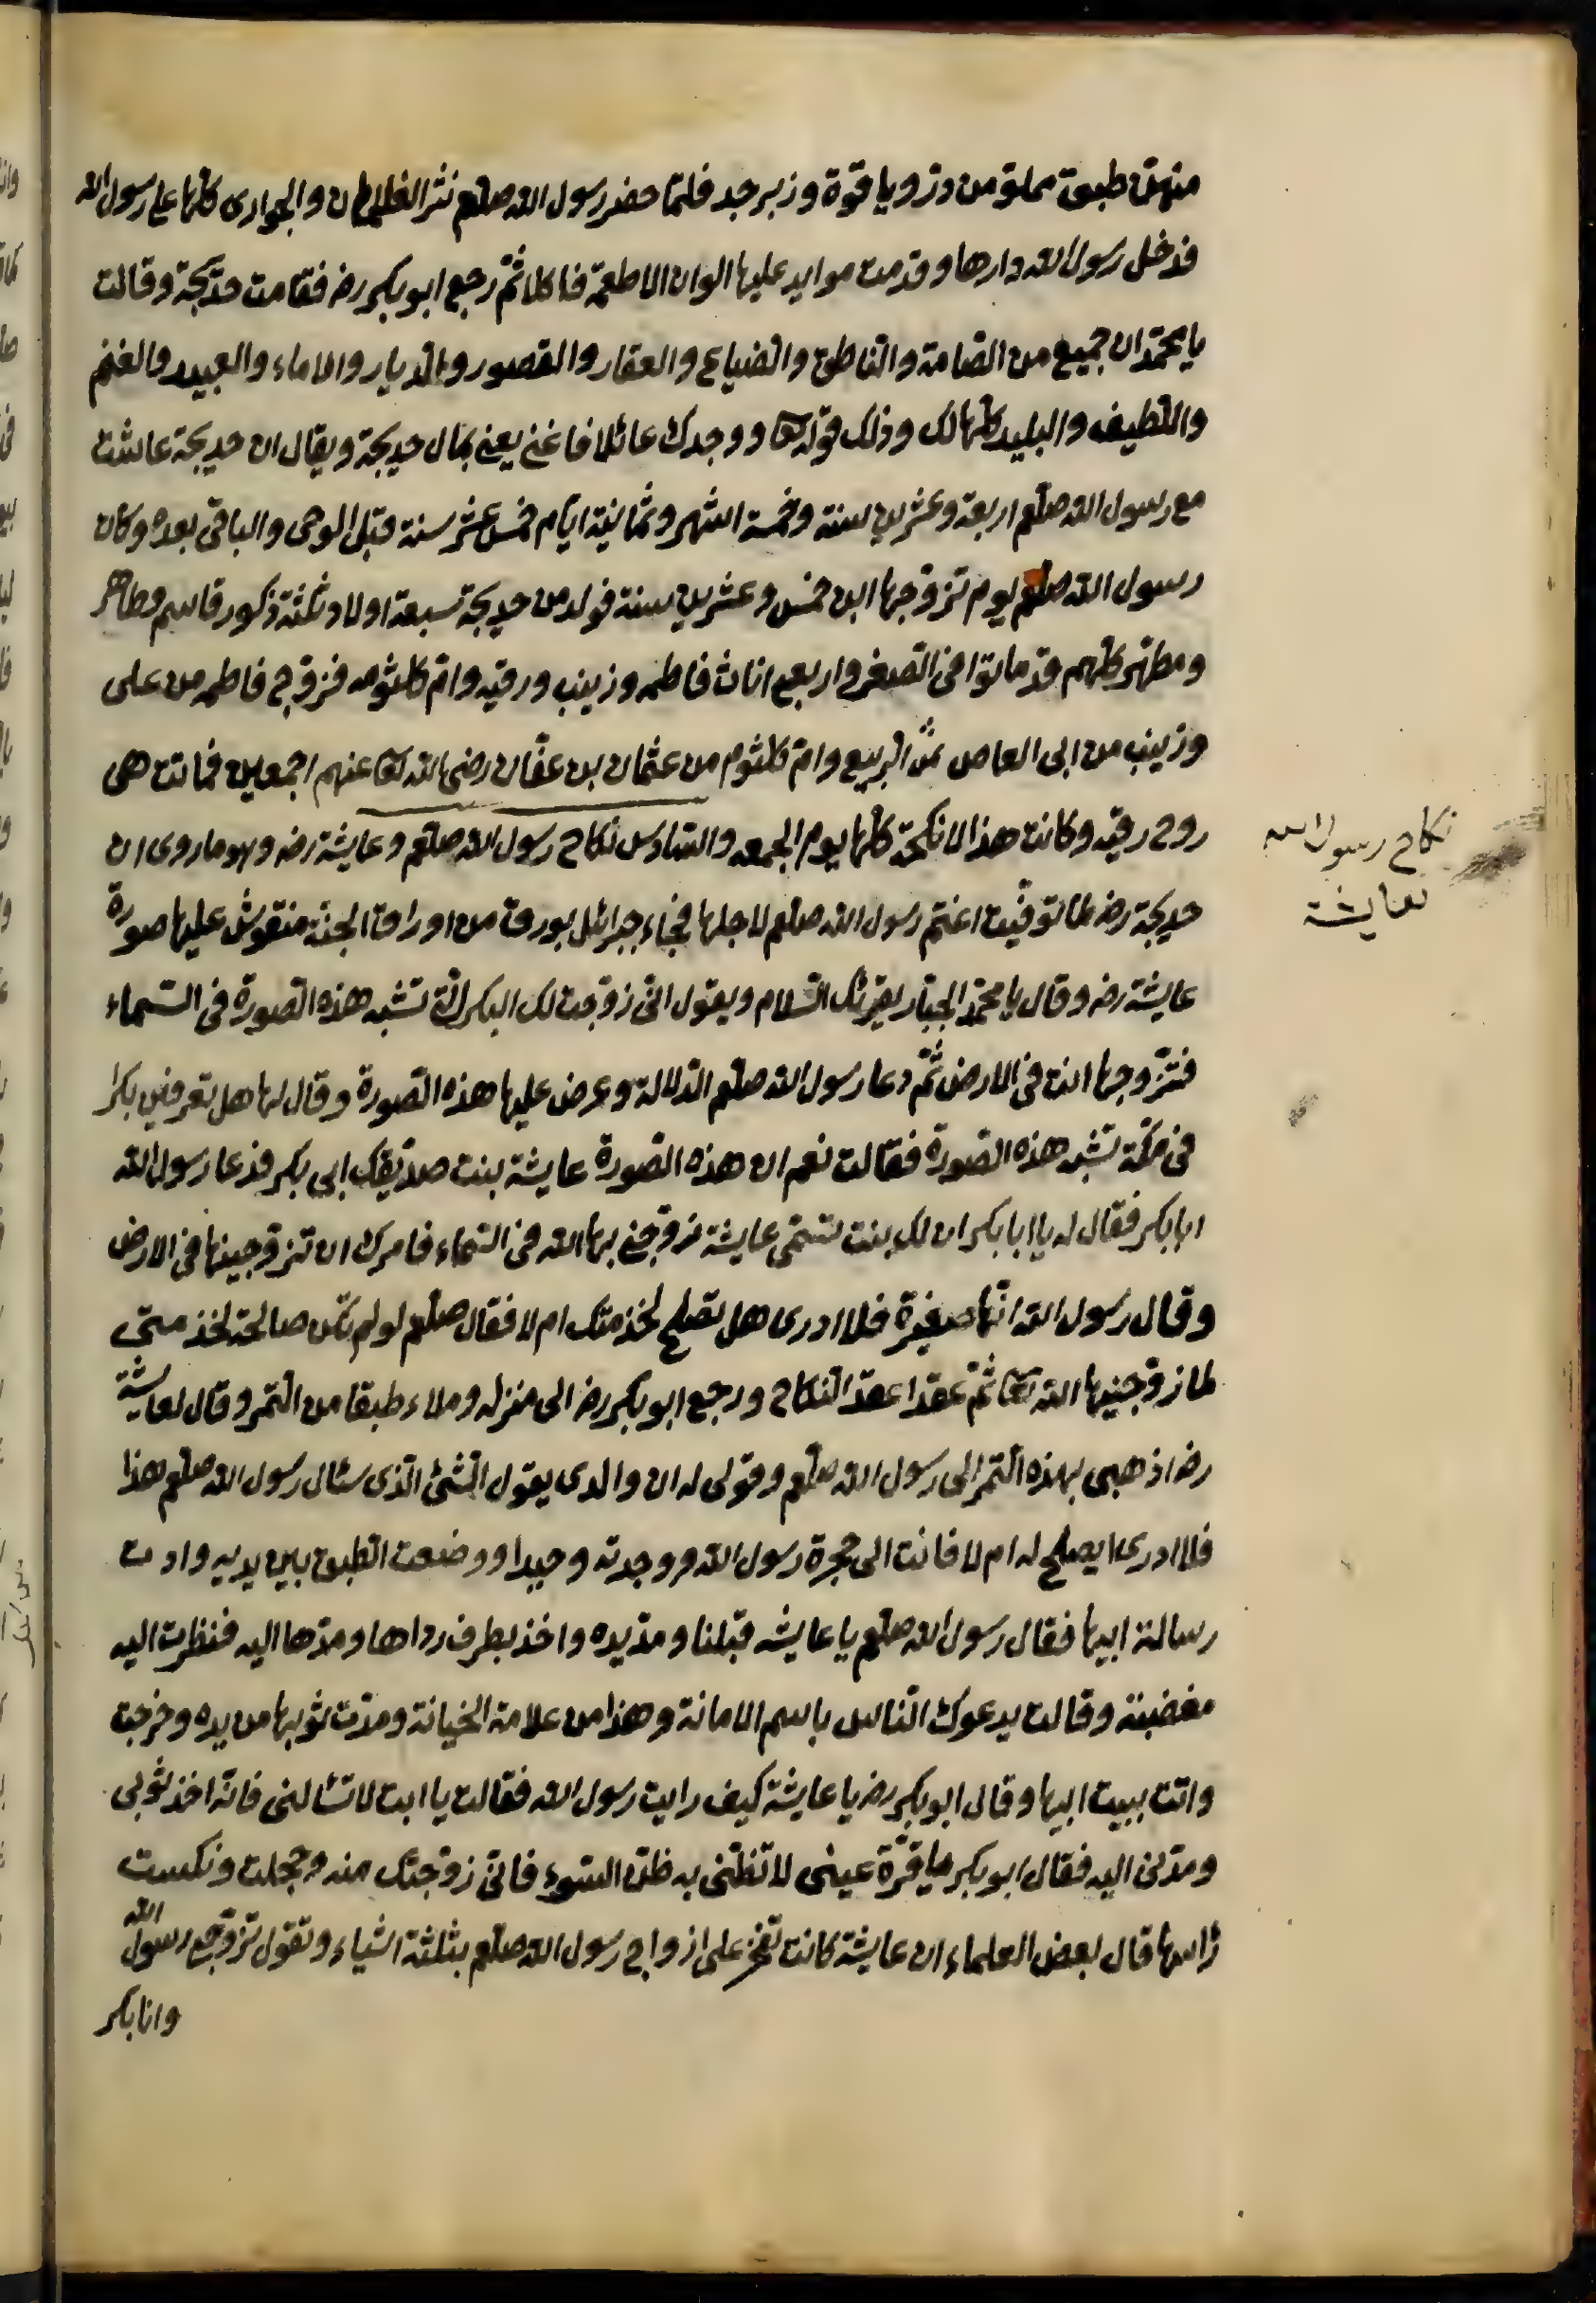 منهن طبق مملو من در و ياقوة و زبرجد فلما حضر رسول الله صلعم نثر الغلمان والجوارى كلها على رسول الله
فدخل رسول الله دارها و قدمت موايد عليها الوان الاطعمة فاكلا ثم رجع ابو بكر رضـ فقامت خديجة و قالت
يا محمد ان جميع من الصامة والناطق والضياع والعقار والقصور والديار والاماء والعبيد والغنم
واللطيف والبليد كلها لك وذلك قوله تعا ووجدك عائلا فاغنى يعنى بمال خديجة و يقال ان خديجة عاشت
مع رسول الله صلعم اربعة و عشرين سنة و خمسة اشهر و ثمانية ايام خمس عشر سنة قبل الوحى والباقى بعده وكان
رسول الله صلعم يوم تزوجها ابن خمس و عشرين سنة فولد من خديجة سبعة اولاد ثلثة ذكور قاسم وطاهر
ومطهر كلهم قد ماتوا فى الصغر واربع اناث فاطمه و زينب و رقيه وام كلثومه فزوج فاطمه من على
وزينب من ابى العاص بن الربيع وام كلثوم من عثمان بن عفان رضى الله تعا عنهم اجمعين فماتت هى
زوج رقيه وكانت هذا الانكحة كلها يوم الجمعه والسادس نكاح رسول الله صلعم وعايشة رضـ وهو ما روى ان
خديجة رضـ لما توفيت اغتم رسول الله صلعم لاجلها فجاء جبرائل بورق من اوراق الجنة منقوش عليها صورة
عايشة رضـ وقال يا محمد الجبار يقرئك السلام ويقول انى زوجت لك البكر التى تشبه هذه الصورة فى السماء
فتزوجها انت فى الارض ثم دعا رسول الله صلعم الدلالة وعرض عليها هذه الصورة وقال لها هل تعرفين بكرا
فى مكة تشبه هذه الصورة فقالت نعم ان هذه الصورة عايشة بنت صديقك ابى بكر فدعا رسول الله
ابا بكر فقال له يا ابا بكر ان لك بنت تسمى عايشة زوجنى بها الله فى السماء فامرك ان تزوجينها فى الارض
وقال رسول الله انها صغيرة فلا ادرى هل تصلح لخدمتك ام لا فقال صلعم لو لم تكن صالحة لخدمتى
لما زوجنيها الله تعا ثم عقدا عقد النكاح و رجع ابو بكر رضـ الى منزله وملاء طبقا من التمر وقال لعايشة
رضـ اذهبى بهذه التمر الى رسول الله صلعم وقولى له ان والدى يقول الشئ الذى سئال رسول الله صلعم هذا
فلا ادرى ايصلح له ام لا فاتت الى حجرة رسول الله ووجدته وحيدا ووضعت الطبق بين يديه وادت
رسالة ابيها فقال رسول الله صلعم يا عايشه قبلنا ومد يده واخذ بطرف رداها ومدها اليه فنظرت اليه
مغضبة وقالت يدعوك الناس باسم الامانة وهذا من علامة الخيانة ومدت ثوبها من يده وخرجت
واتت ببيت ابيها وقال ابو بكر رضـ يا عايشة كيف رايت رسول الله فقالت يا ابت لا تسئالنى فانه اخذ ثوبى
ومدنى اليه فقال ابو بكر يا قرة عينى لا تظنى به ظن السوء فانى زوجتك منه وخجلت ونكست
رٔاسها قال بعض العلماء ان عايشة كانت تفخر على ازواج رسول الله صلعم بثلثة اشياء وتقول تزوجنى رسول الله
وانا بكر
نكاح رسول الله
بعايشة